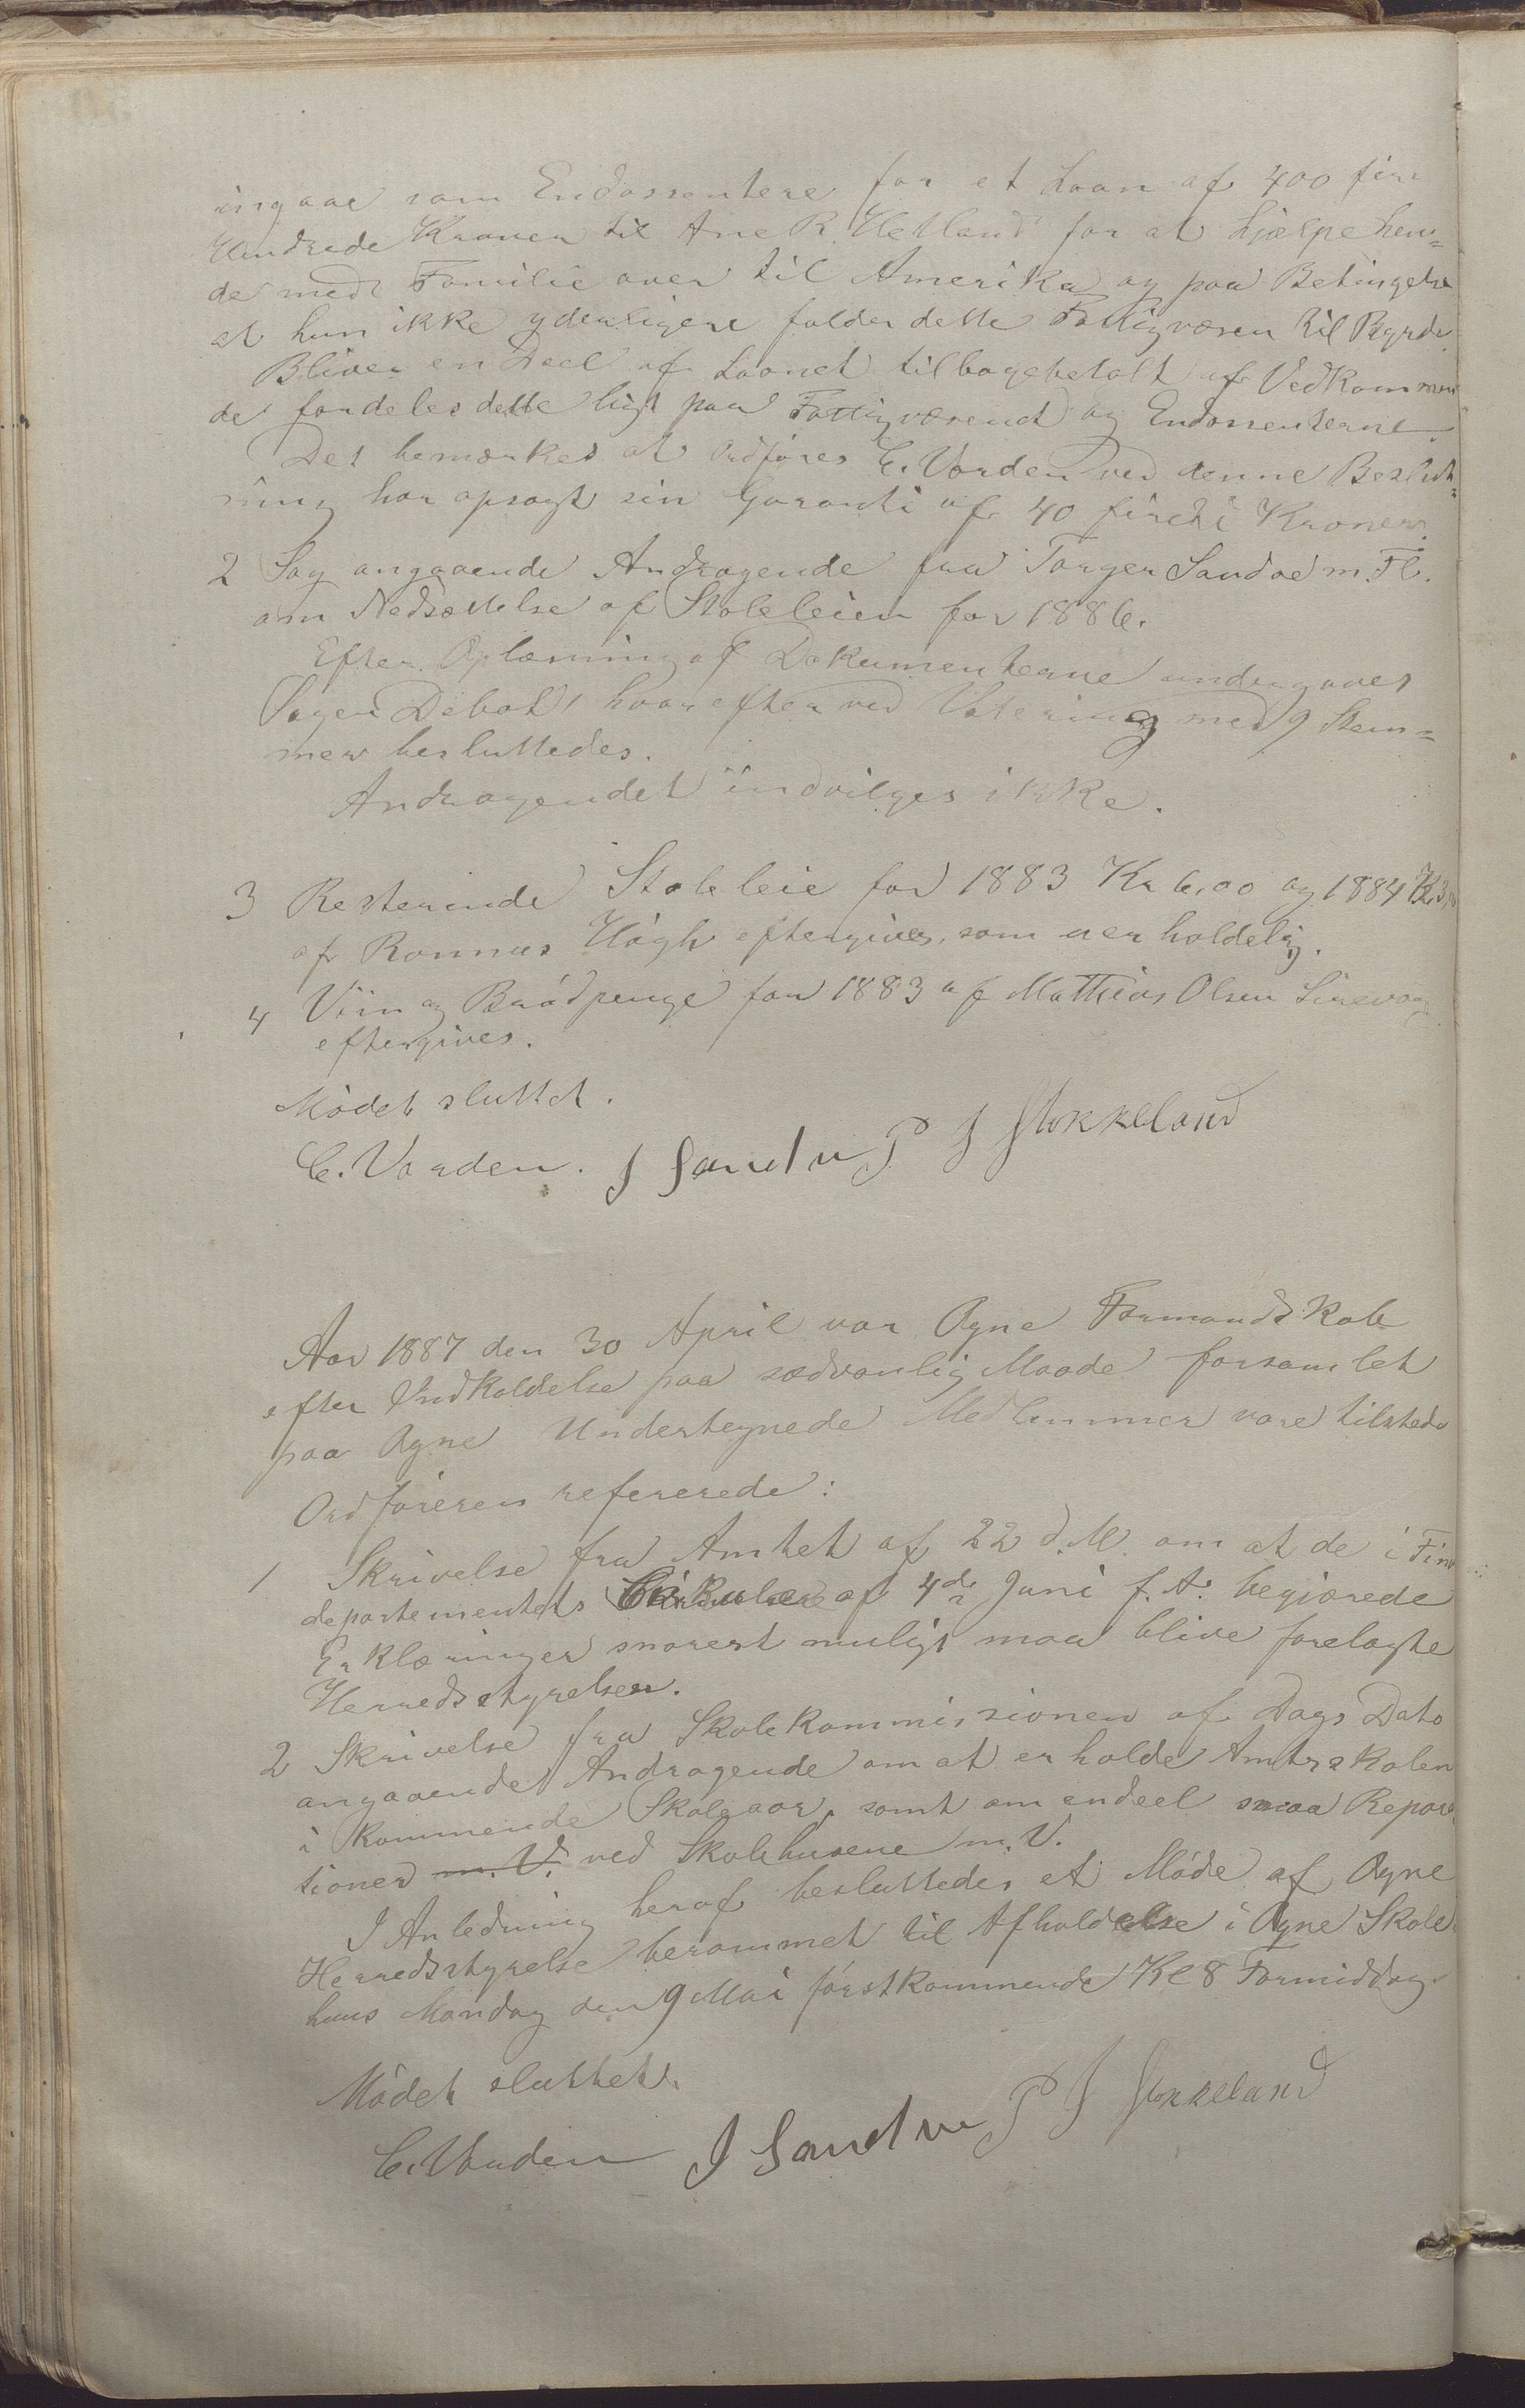 ingaae som Endossentere for et Laan af 400 fire
Hundrede Kroner til Ane R. Hetland for at hjælpe hen-
de med Familie over til Amerika og paa Betingelse
at hun ikke yderligere falder dette Fattigvæsen til Byrde.
Bliver en Deel af Laanet tilbagebetalt af Vedkommen
de fordeles dette ligt paa Fattigvæsenet og Endossenterne.
Det bemærkes at Ordfører C. Varden ved denne Beslut-
ning har opsagt sin Garanti af 40 firti Kroner.
2 Sag angaaende Andragende fra Torger Sandve m. Fl.
om Nedsættelse af Stoleleien for 1886.
Efter Oplæsning af Dokumenterne undergaves
Sagen Debat, hvorefter ved Votering med 9 Stem=
mer besluttedes.
Andragendet indvilges ikke.
3 Resterende Stoleleie for 1883 Kr 6,00 og 1884 Kr 3,
af Rasmus Høgh eftergives, som uerholdelig.
4 Viin og Brødpenge for 1883 af Mathias Olsen Sirevaag
eftergives.
Mødet sluttet.
C. Varden. J Sandve P J Stokkeland
Aar 1887 den 30 April var Ogne Formandskab
efter Indkaldelse paa sædvanlig Maade forsamlet
paa Ogne Undertegnede Medlemmer vare tilstede
Ordføreren refererede:
1 Skrivelse fra Amtet af 22 d. M. om at de i Fin
departementets Cirkulære af 4de Juni f. A. begjærede
Erklæringer snarest muligt maa blive forelagte
Herredsstyrelsen.
2 Skrivelse fra Skolekommissionen af Dags Dato
angaaende Andragende om at erholde Amtsskolen
i kommende Skoleaar, samt om endeel smaa Repara
tioner m. V. ved Skolehusene m. V.
I Anledning heraf besluttedes et Møde af Ogne
Herredsstyrelse berammet til Afholdelse i Ogne Skole
huus Mandag den 9 Mai førstkommende Kl 8 Formiddag.
Mødet sluttet.
C. Varden J Sandve P J Stokkeland